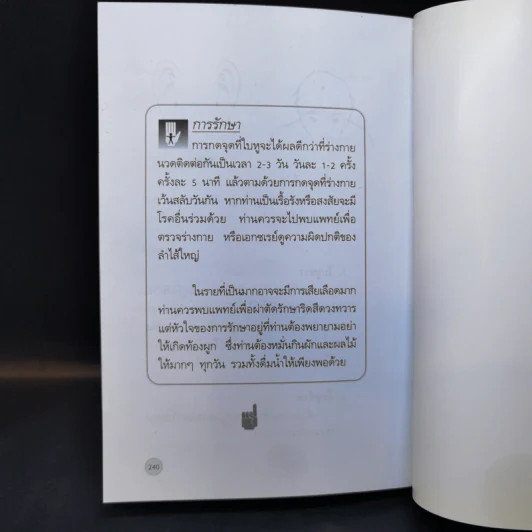 การรักษา
การกดจุดที่ใบหูจะได้ผลดีกว่าที่ร่างกาย
นวดติดต่อกันเป็นเวลา 2-3 วัน วันละ 1-2 ครั้ง
ครั้งละ 5 นาที แล้วตามด้วยการกดจุดที่ร่างกาย
เว้นสลับวันกัน หากท่านเป็นเรื้อรังหรือสงสัยจะมี
โรคอื่นร่วมด้วย ท่านควรจะไปพบแพทย์เพื่อ
ตรวจร่างกาย หรือเอกซเรย์ดูความผิดปกติของ
ลำไส้ใหญ่
ในรายที่เป็นมากอาจจะมีการเสียเลือดมาก
ท่านควรพบแพทย์เพื่อผ่าตัดรักษาริดสีดวงทวาร
แต่หัวใจของการรักษาอยู่ที่ท่านต้องพยายามอย่า
ให้เกิดท้องผูก ซึ่งท่านต้องหมั่นกินผักและผลไม้
ให้มากๆ ทุกวัน รวมทั้งดื่มน้ำให้เพียงพอด้วย
240